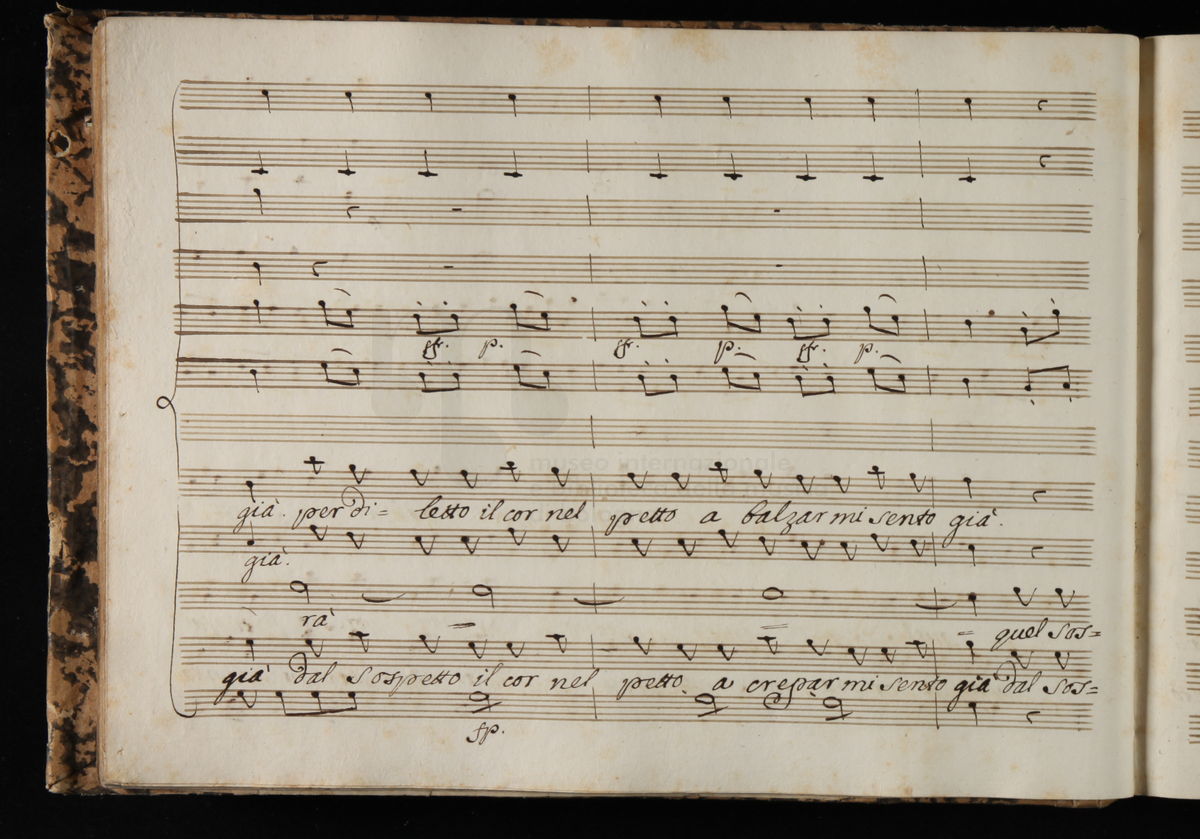 sf. p. sf. p. sf. p.
museo internazionale
già. per di= letto il cor nel petto a balzar mi sento già.
già.
rà = = = quel sos=
già dal sospetto il cor nel petto a crepar mi sento già dal sos=
fp.